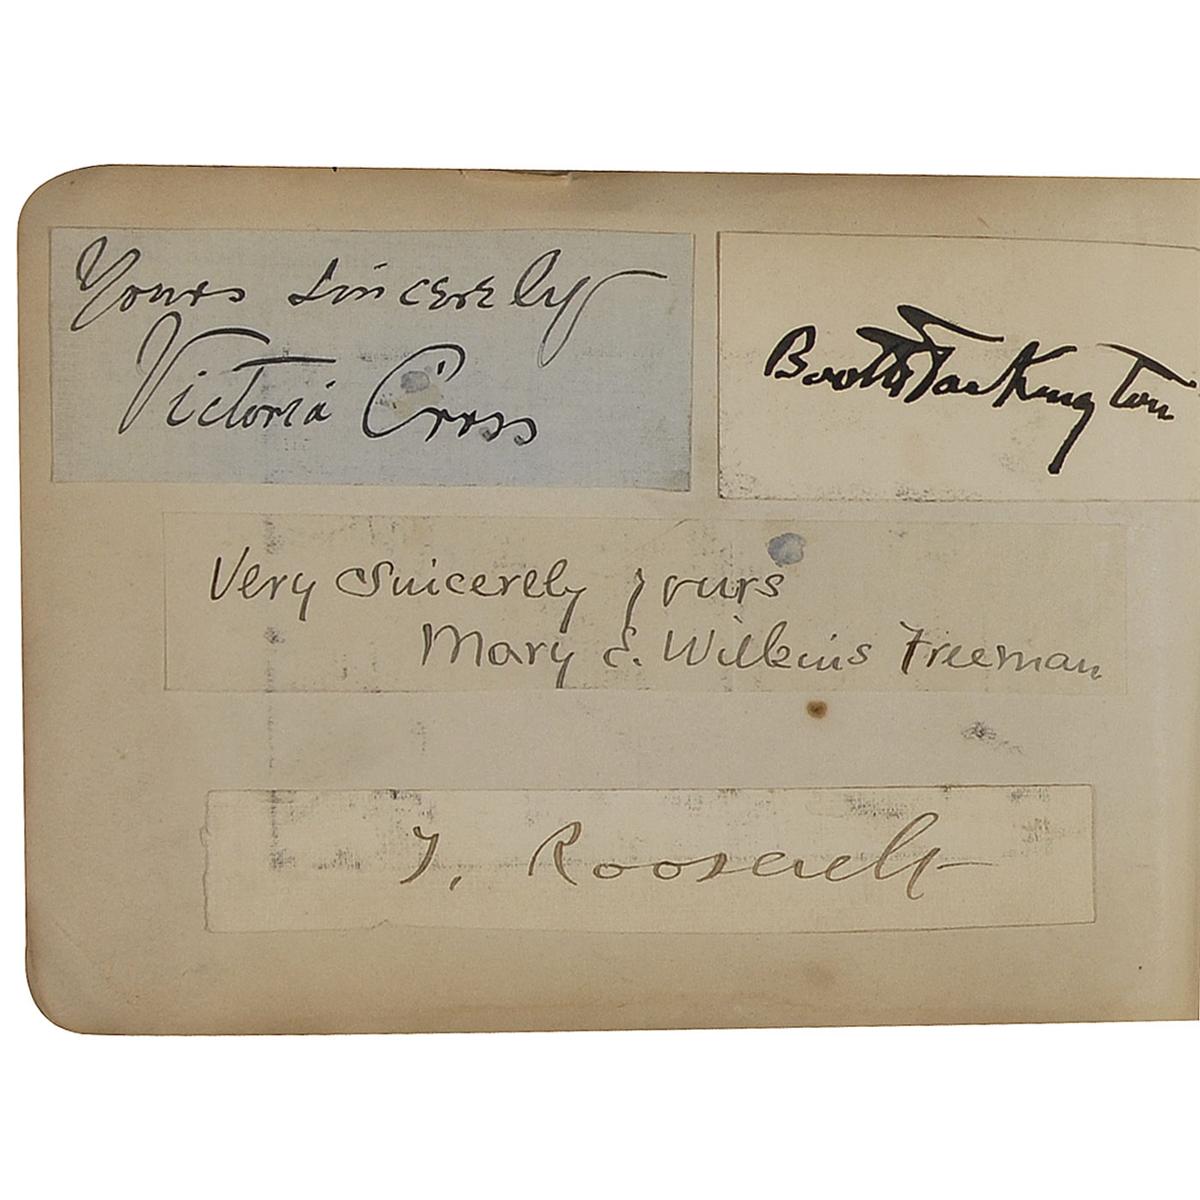 Yours Sincerely
Victoria Cross
Booth Tarkington
Very Sincerely yours
Mary E. Wilkins Freeman
T. Roosevelt